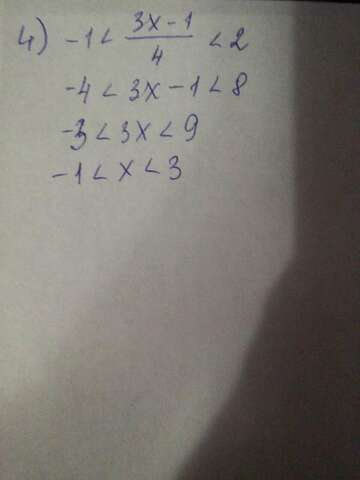 4) -1 < (3x-1)/4 < 2
-4 < 3x-1 < 8
-3 < 3x < 9
-1 < x < 3